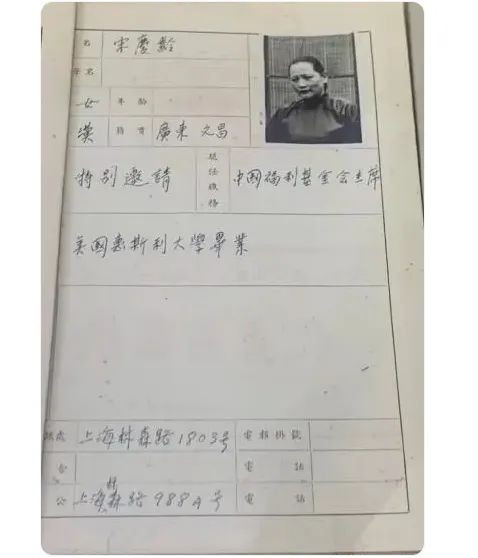 名 宋慶齡
别名
女 年齡
漢 籍貫 廣東文昌
特别邀請 現任職務 中國福利基金会主席
美國惠斯利大學畢業
訊處 上海林森路1803号 電報掛號
電話
公 上海林森路988A号 電話